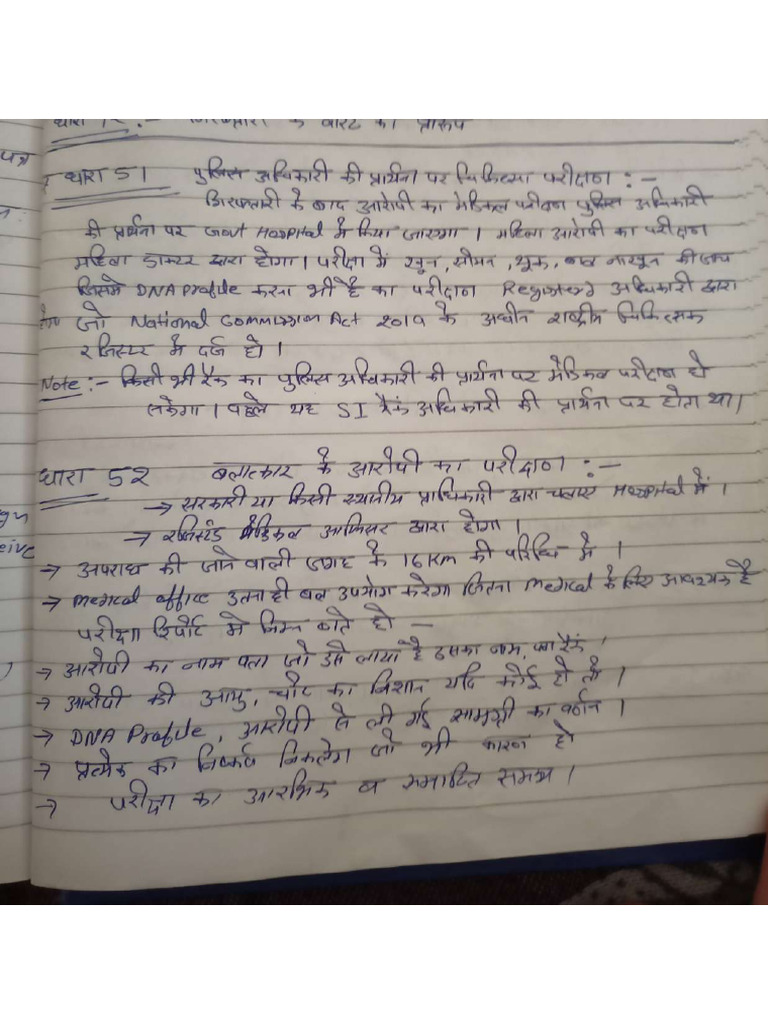 धारा 51 पुलिस अधिकारी की प्रार्थना पर चिकित्सा परीक्षण :-
गिरफ्तारी के बाद आरोपी का मेडिकल परीक्षण पुलिस अधिकारी
की प्रार्थना पर Govt Hospital में किया जाएगा । महिला आरोपी का परीक्षण
महिला डाक्टर द्वारा होगा। परीक्षा में खून, सीमन, थूक, नाखून की जांच
जिसमे DNA Profile करना भी है का परीक्षण अधिकारी द्वारा
जो National Commission Act 2019 के अधीन राष्ट्रीय चिकित्सक
रजिस्टर में दर्ज हो ।
Note :- किसी भी रैंक का पुलिस अधिकारी की प्रार्थना पर मेडिकल परीक्षण हो
सकेगा । पहले यह SI रैंक अधिकारी की प्रार्थना पर होता था।
धारा 52 बलात्कार के आरोपी का परीक्षण :-
→ सरकारी या किसी स्थानीय प्राधिकारी द्वारा चलाए Hospital में ।
→ रजिस्टर्ड मेडिकल आफिसर द्वारा होगा ।
→ अपराध की जाने वाली जगह के 16 Km की परिधि में ।
→ उतना ही बल उपयोग करेगा जितना medical के लिए आवश्यक है
परीक्षा रिपोर्ट मे निम्न बाते हो —
→ आरोपी का नाम पता जो उसे लाया है उसका नाम, रैंक ।
→ आरोपी की आयु, चोट का निशान यदि कोई हो तो ।
→ DNA Profile, आरोपी से ली गई सामग्री का वर्णन ।
→ प्रत्येक का निष्कर्ष निकलेगा जो भी कारण हो
→ परीक्षा का आरंभिक व समाप्ति समय ।